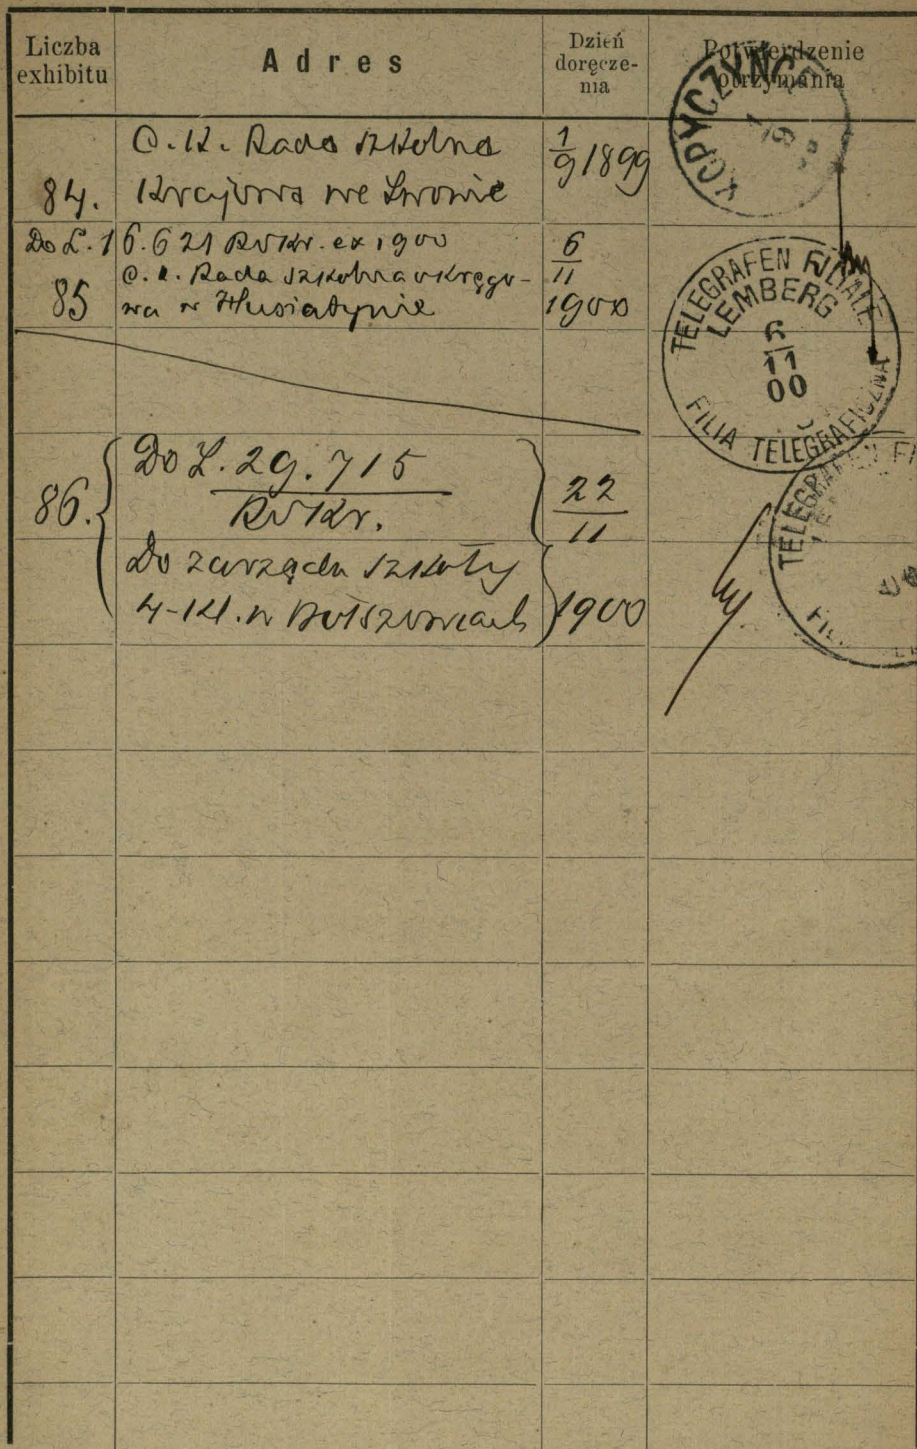 Liczba exhibitu | Adres | Dzień doręcze-nia | Potwierdzenie otrzymania
C. K. Rada szkolna 1/9 1899
84. Krajowa we Lwowie
KOPYCZYŃCE
Do L. 16.621 RSKr. ex 1900 6/11
C. K. Rada szkolna okręgo-
85 wa w Husiatynie 1900
TELEGRAFEN FILIALE
LEMBERG
6
11
00
FILIA TELEGRAFICZNA
Do L. 29.715
86. RSKr. 22/11
Do zarządu szkoły
4-kl. w Bołszowcach 1900
TELEGRAFEN FI